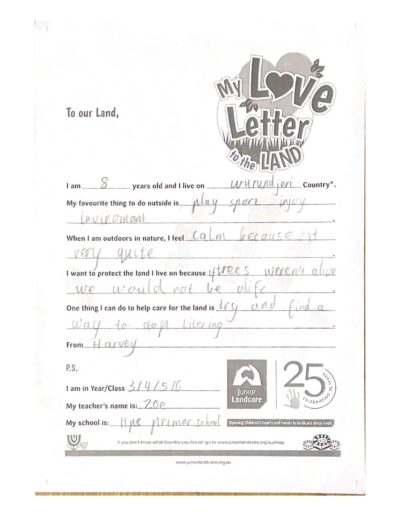 My Love
Letter
to the LAND
To our Land,
I am 8 years old and I live on wurundjeri Country*.
My favourite thing to do outside is play sport injoy
inviroment.
When I am outdoors in nature, I feel calm because it
very quite.
I want to protect the land I live on because if trees weren't alive
we would not be alife.
One thing I can do to help care for the land is try and find a
way to stop litering.
From Harvey
P.S.
I am in Year/Class 3/4/5/6
My teacher's name is: Zoe
My school is: Hps primer school
Junior
Landcare
25 YEARS OF
CELEBRATING
Opening children's hearts and hands to landcare since 1998
If you don't know what Country you live on, go to www.juniorlandcare.org.au/map
www.juniorlandcare.org.au